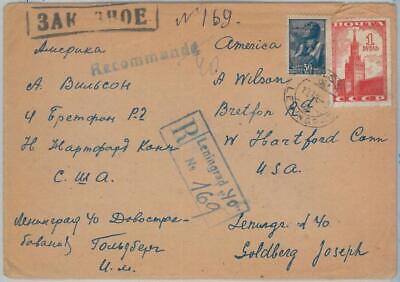 ЗАКАЗНОЕ
№ 169.
Recommandé
30
ПОЧТА
1
РУБЛЬ
СССР
Америка
А. Вильсон
4 Бретфон Р.2
Н. Хартфорд Конн
С. Ш. А.
America
A Wilson
4 Bretfon
W Hartford Conn
U.S.A.
R
Leningrad 40
№ 169
Ленинград 40 Довостре-
бования Гольдберг
И. М.
Leningr. d 40
Goldberg Joseph